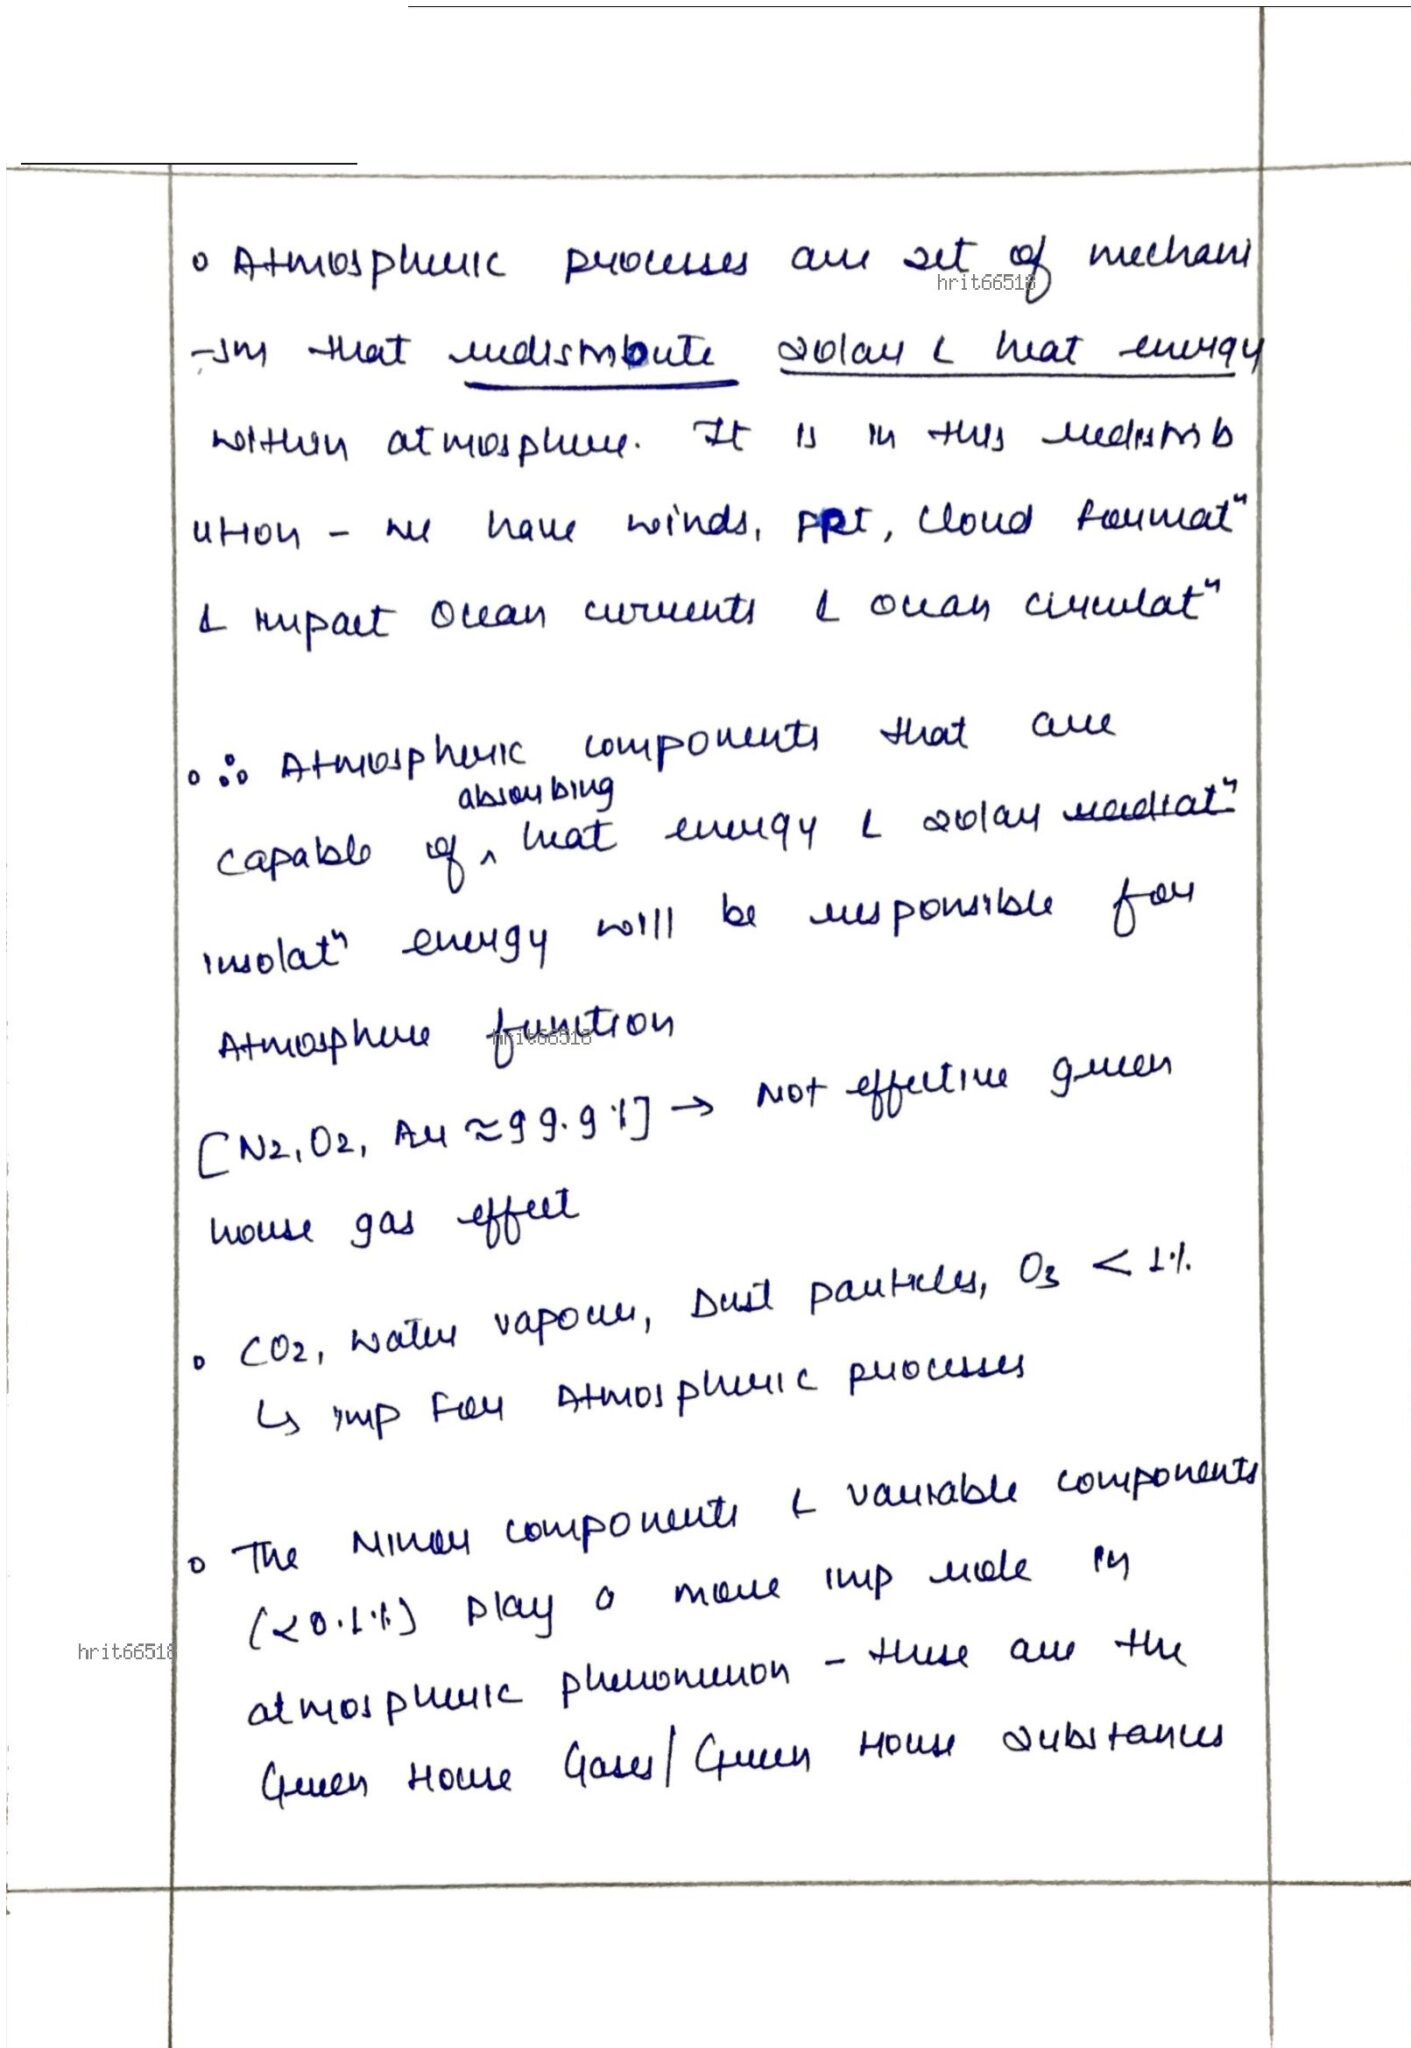 o Atmospheric processes are set of mechani
-sm that redistribute solar & heat energy
within atmosphere. It is in this redistrib
ution - we have winds, PPT, cloud format"
& impact Ocean currents & ocean circulat"
o ∴ Atmospheric components that are
absorbing
capable of ^ heat energy & solar radiat"
insolat" energy will be responsible for
Atmosphere function
[N2, O2, Ar ≈ 99.9%] → Not effective green
house gas effect
o CO2, water vapour, Dust particles, O3 < 1%
↳ imp For Atmospheric processes
o The Minor components & variable components
(<0.1%) play a more imp role in
atmospheric phenomenon - these are the
Green House Gases/Green House substances
hrit66518
hrit66518
hrit66518